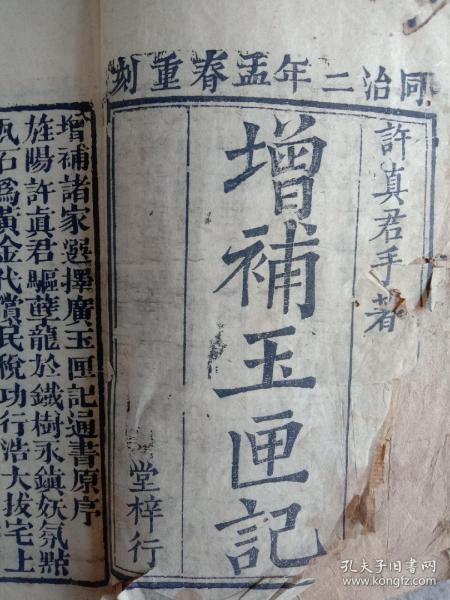 同治二年孟春重刻
許真君手著
增補玉匣記
堂梓行
增補諸家選擇廣玉匣記通書原序
旌陽許真君驅孽龍於鐵樹永鎮妖氛點
瓦石為黃金代賞民稅功行浩大拔宅上
孔夫子旧书网
www.kongfz.com